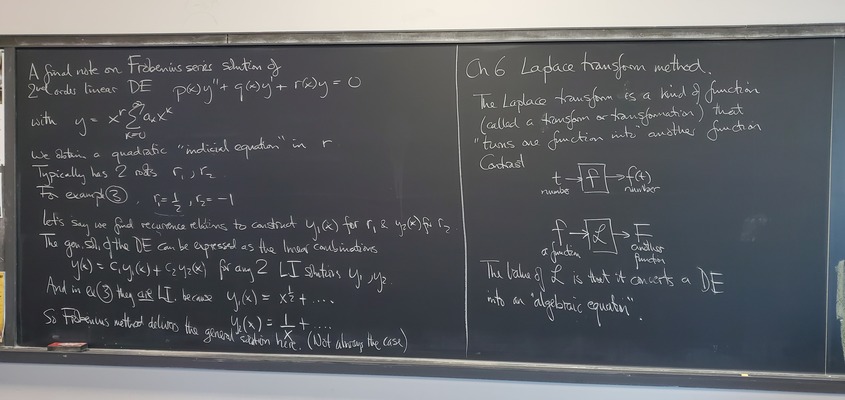 A final note on Frobenius series solution of
2nd order linear DE p(x)y" + q(x)y' + r(x)y = 0
with y = x^r ∑_{k=0}^∞ a_k x^k
We obtain a quadratic "indicial equation" in r
Typically has 2 roots r₁, r₂
For example ③, r₁ = 1/2, r₂ = -1
Let's say we find recurrence relations to construct y₁(x) for r₁ & y₂(x) for r₂
The gen. sol. of the DE can be expressed as the linear combinations
y(x) = c₁y₁(x) + c₂y₂(x) for any 2 LI solutions y₁, y₂.
And in ex ③ they are LI because y₁(x) = x^{1/2} + ....
y₂(x) = 1/x + ....
So Frobenius method delivers the general solution here. (Not always the case)
Ch 6 Laplace transform method.
The Laplace transform is a kind of function
(called a transform or transformation) that
"turns one function into" another function
Contrast
t → f → f(t)
number number
f → ℒ → F
a function another function
The value of ℒ is that it converts a DE
into an "algebraic equation".